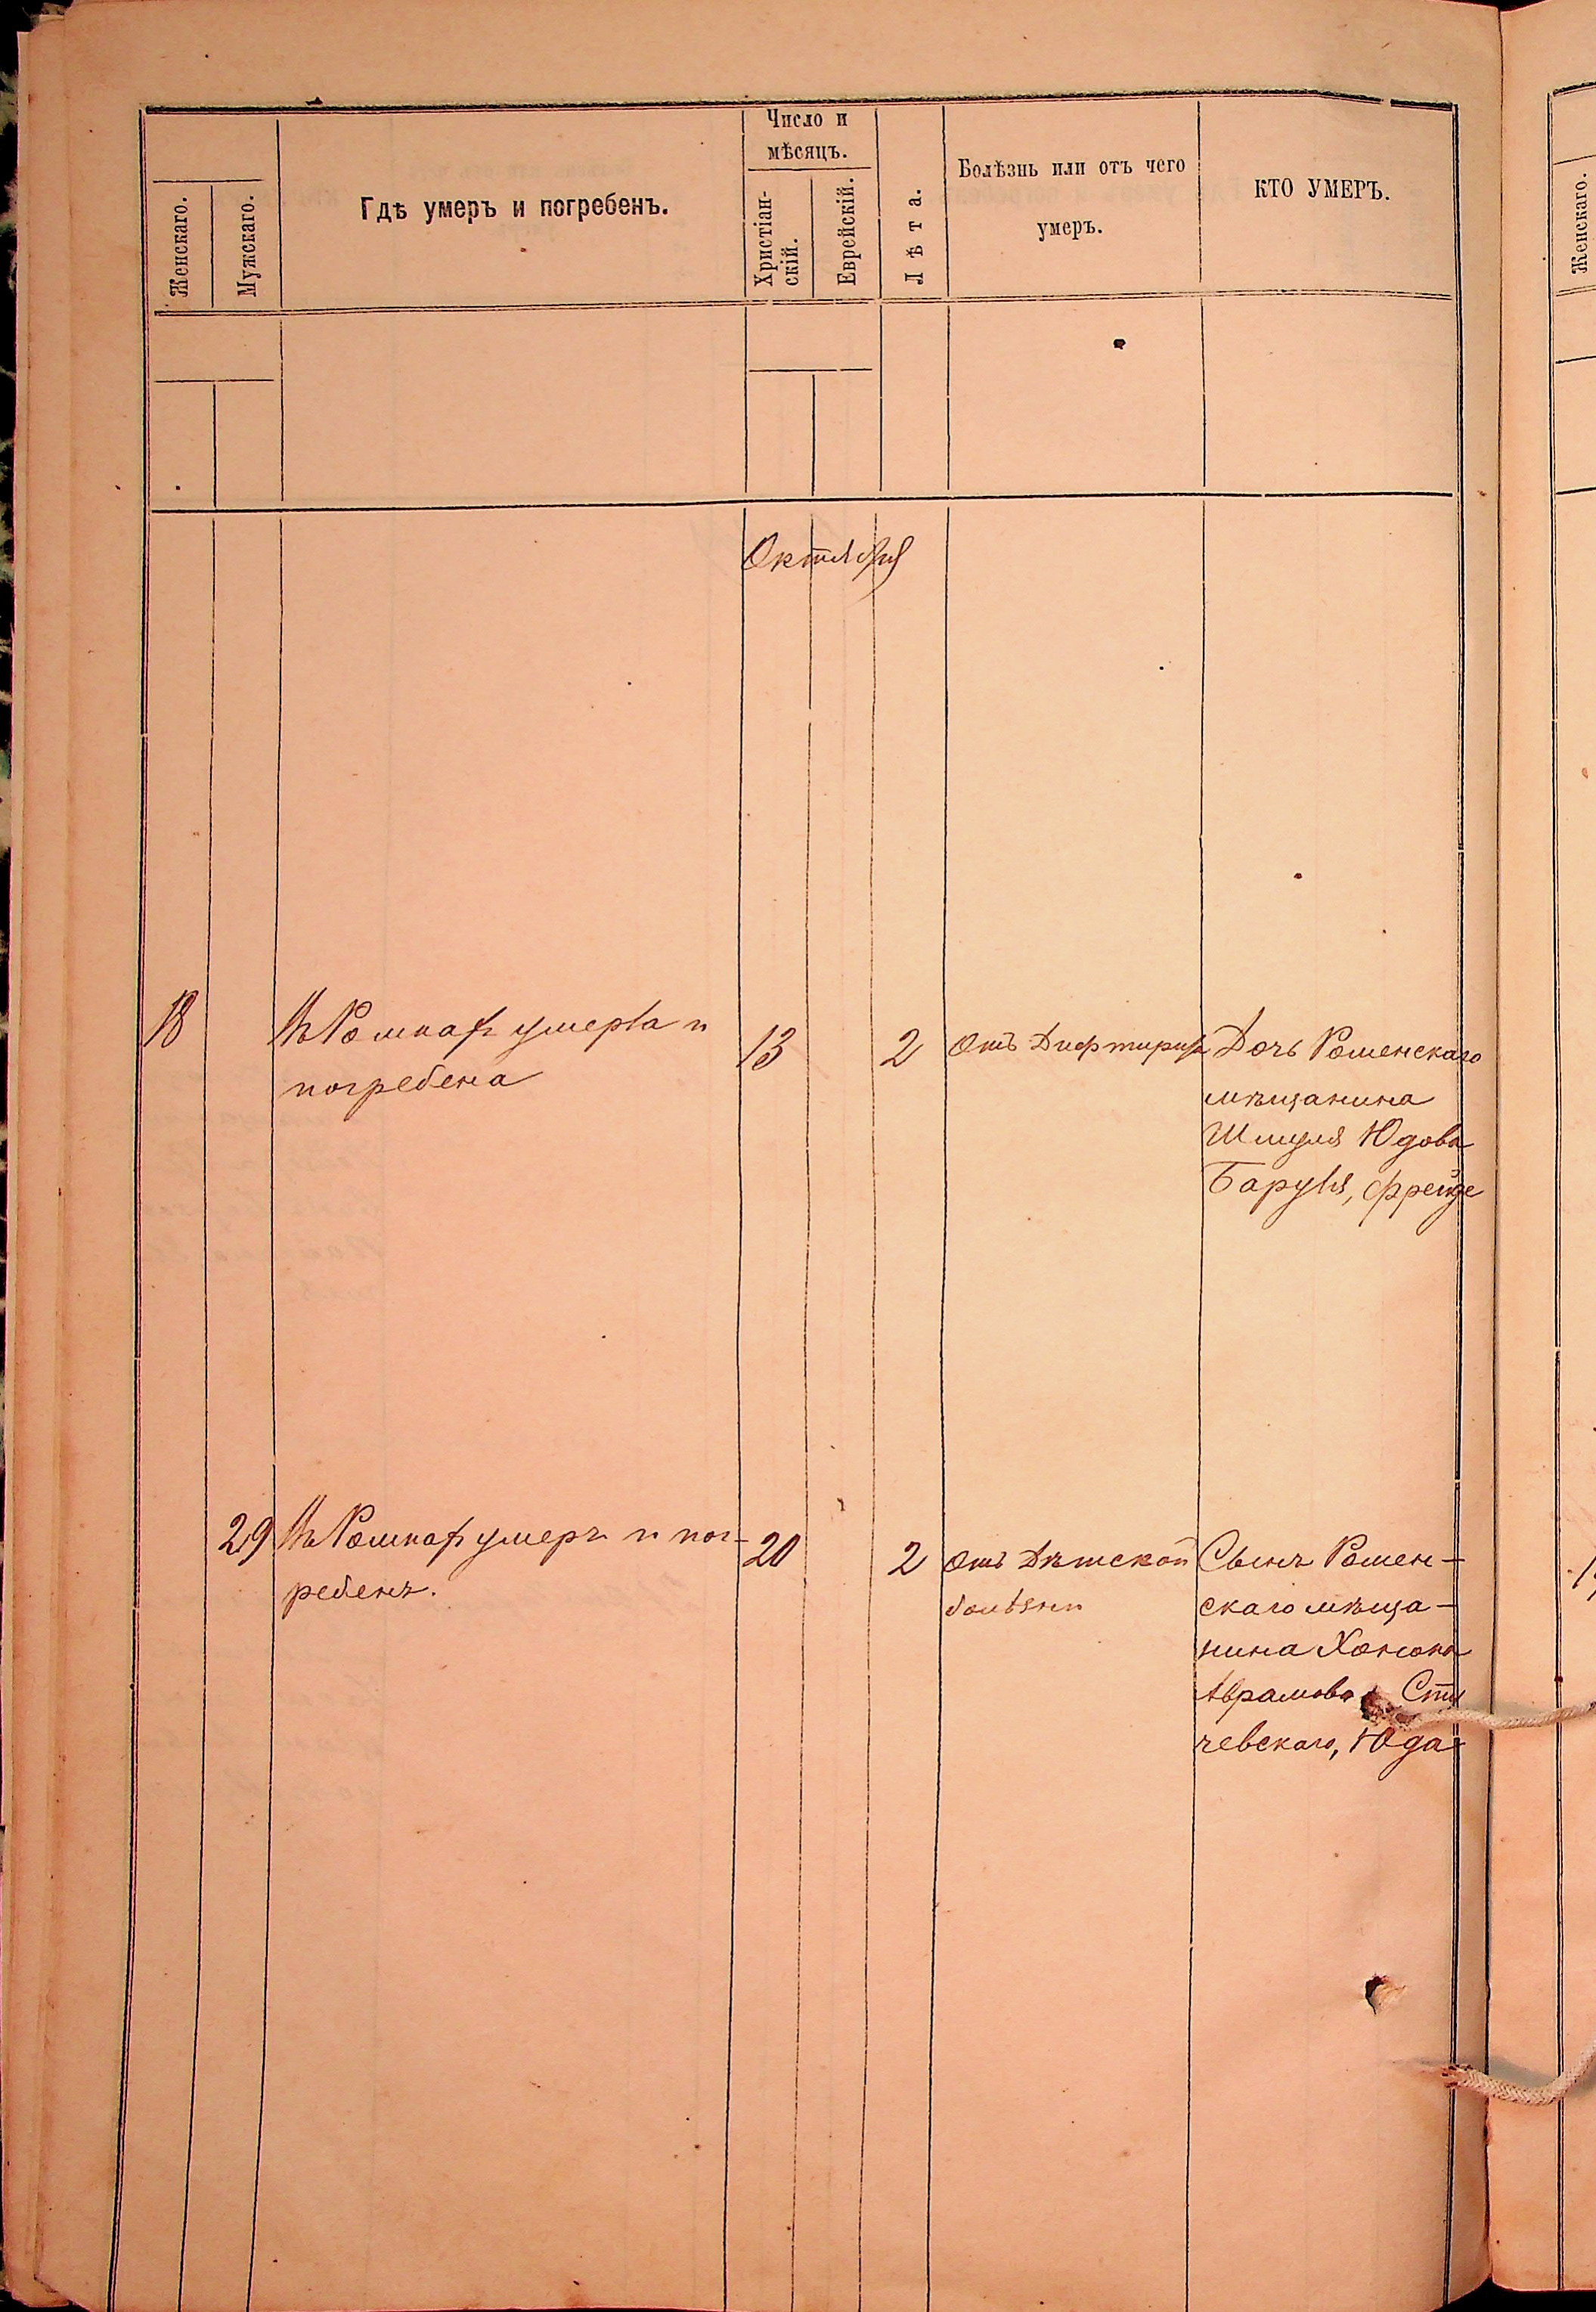 Число и
мѣсяцъ.
Женскаго.
Мужскаго.
Гдѣ умеръ и погребенъ.
Христіан-
скій.
Еврейскій.
Лѣта.
Болѣзнь или отъ чего
умеръ.
КТО УМЕРЪ.
Женскаго.
Октября
18
Въ Ромнахъ умерла и
погребена
13
2
Отъ Дифтирита
Дочь Роменскаго
мѣщанина
Шмуля Юдова
Баруля, Фрейде
29
Въ Ромнахъ умеръ и пог-
ребенъ.
20
2
Отъ Дѣтской
болѣзни
Сынъ Ромен-
скаго мѣща-
нина Хонона
Аврамова
чевскаго, Юда